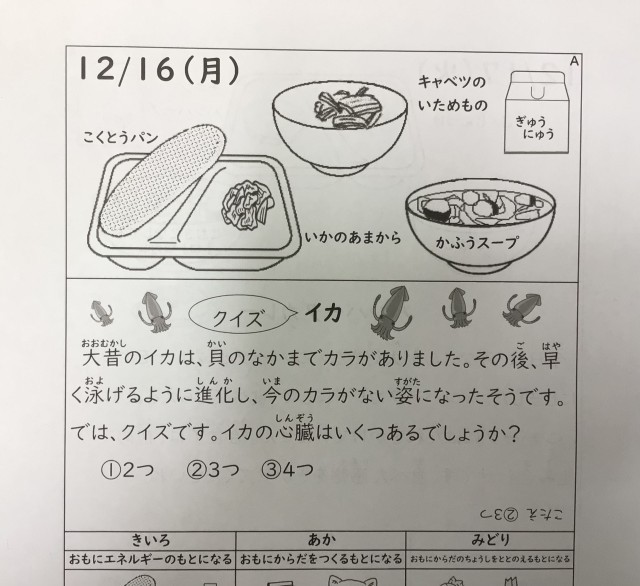 12/16(月)
A
キャベツの
いためもの
ぎゅう
にゅう
こくとうパン
いかのあまから
かふうスープ
クイズ
イカ
大昔のイカは、貝のなかまでカラがありました。その後、早
おおむかし かい ご はや
く泳げるように進化し、今のカラがない姿になったそうです。
およ しんか いま すがた
では、クイズです。イカの心臓はいくつあるでしょうか?
しんぞう
①2つ ②3つ ③4つ
こたえ ②3つ
きいろ あか みどり
おもにエネルギーのもとになる おもにからだをつくるもとになる おもにからだのちょうしをととのえるもとになる